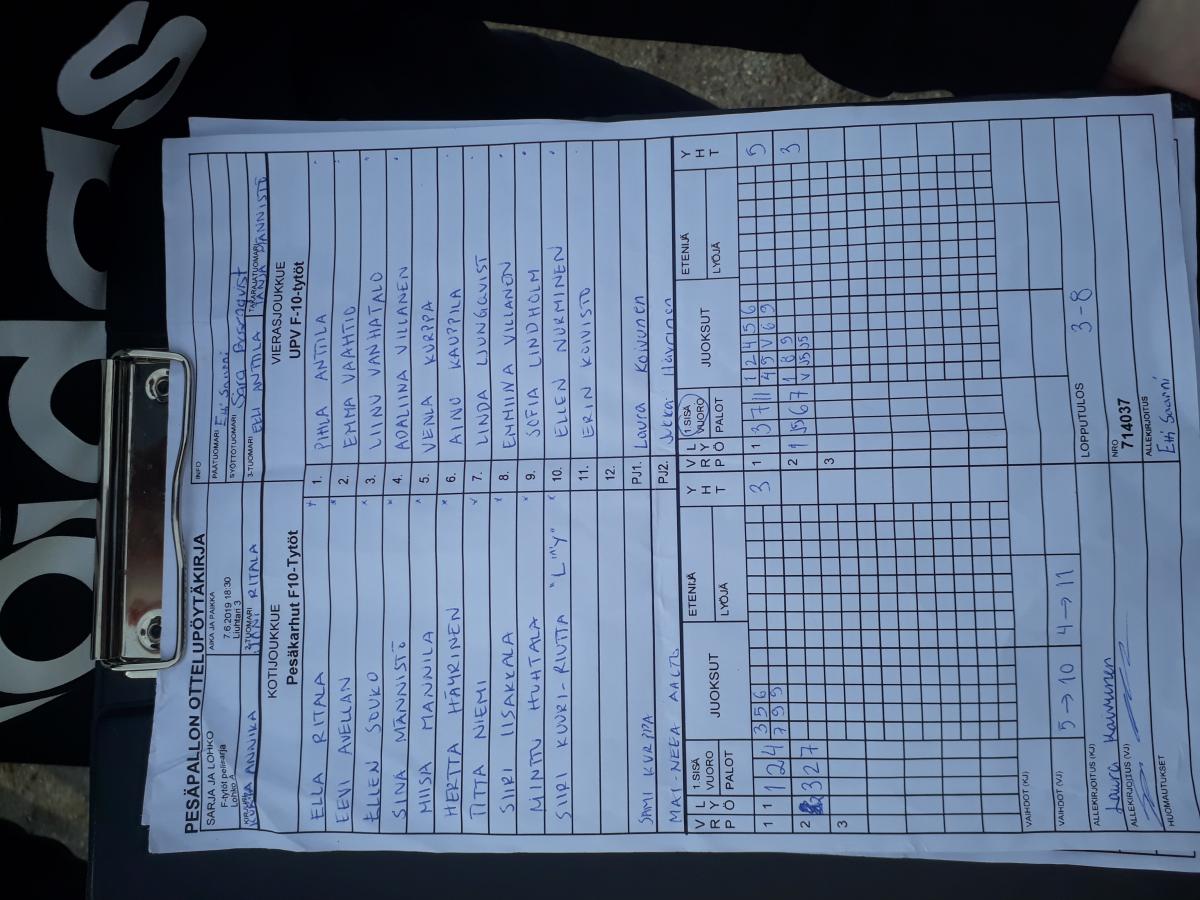 adidas
PESÄPALLON OTTELUPÖYTÄKIRJA
SARJA JA LOHKO
F-tyttöt pelisarja
Lohko A
AIKA JA PAIKKA
7.6.2019 18:30
Liuhtari 3
INFO
PÄÄTUOMARI
SYÖTTÖTUOMARI
KIRJURI ANNIKA
2-TUOMARI JANI RITALA
3-TUOMARI ELI ANTTILA
TAKARAJATUOMARI TANJA MÄNNISTÖ
KOTIJOUKKUE
Pesäkarhut F10-Tytöt
VIERASJOUKKUE
UPV F-10-tytöt
ELLA RITALA x 1. PIHLA ANTTILA
EEVI AVELLAN x 2. EMMA VAAHTIO
ELLEN SOUKO x 3. LIINU VANHATALO
SINA MÄNNISTÖ x 4. ADALIINA VILLANEN
MIISA MANNILA x 5. VENLA KURPPA
HERTTA HÄYRINEN x 6. AINO KAUPPILA
TITTA NIEMI x 7. LINDA LJUNGQVIST
SIIRI IISAKKALA x 8. EMMIINA VILLANEN
MINTTU HUHTALA x 9. SOFIA LINDHOLM
SIIRI KUURI-RIUTTA "L""Y" x 10. ELLEN NURMINEN
11. ERIN KOIVISTO
12.
SAMI KURPPA PJ1. Laura Koivunen
MAI-NEEA AALTO PJ2. Häyrinen
V R P L Y Ö 1.SISÄ VUORO PALOT JUOKSUT ETENIJÄ LYÖJÄ Y H T
V R P L Y Ö 1.SISÄ VUORO PALOT JUOKSUT ETENIJÄ LYÖJÄ Y H T
1 1 1 2 4 3 5 6 3
7 9 9
1 1 3 7 11 1 2 4 5 6 5
4 9 V 6 9
2 3 2 7
2 1 5 6 7 1 8 9 3
V V5 V5
3
3
VAIHDOT (KJ)
VAIHDOT (VJ) 5→10 4→11
ALLEKIRJOITUS (KJ)
Laura Koivunen
ALLEKIRJOITUS (VJ)
HUOMAUTUKSET
LOPPUTULOS 3-8
NRO
714037
ALLEKIRJOITUS